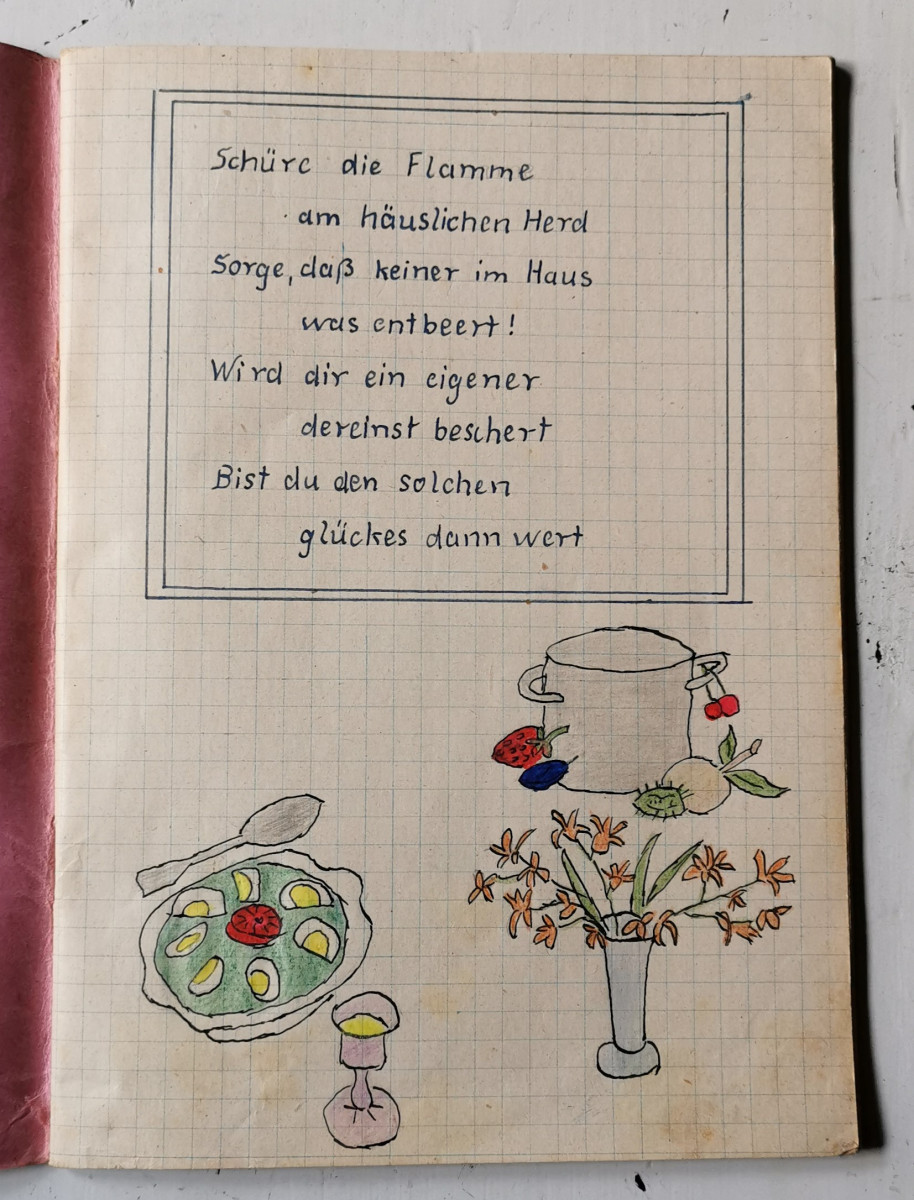 Schüre die Flamme
am häuslichen Herd
Sorge, daß keiner im Haus
was entbeert!
Wird dir ein eigener
dereinst beschert
Bist du den solchen
glückes dann wert